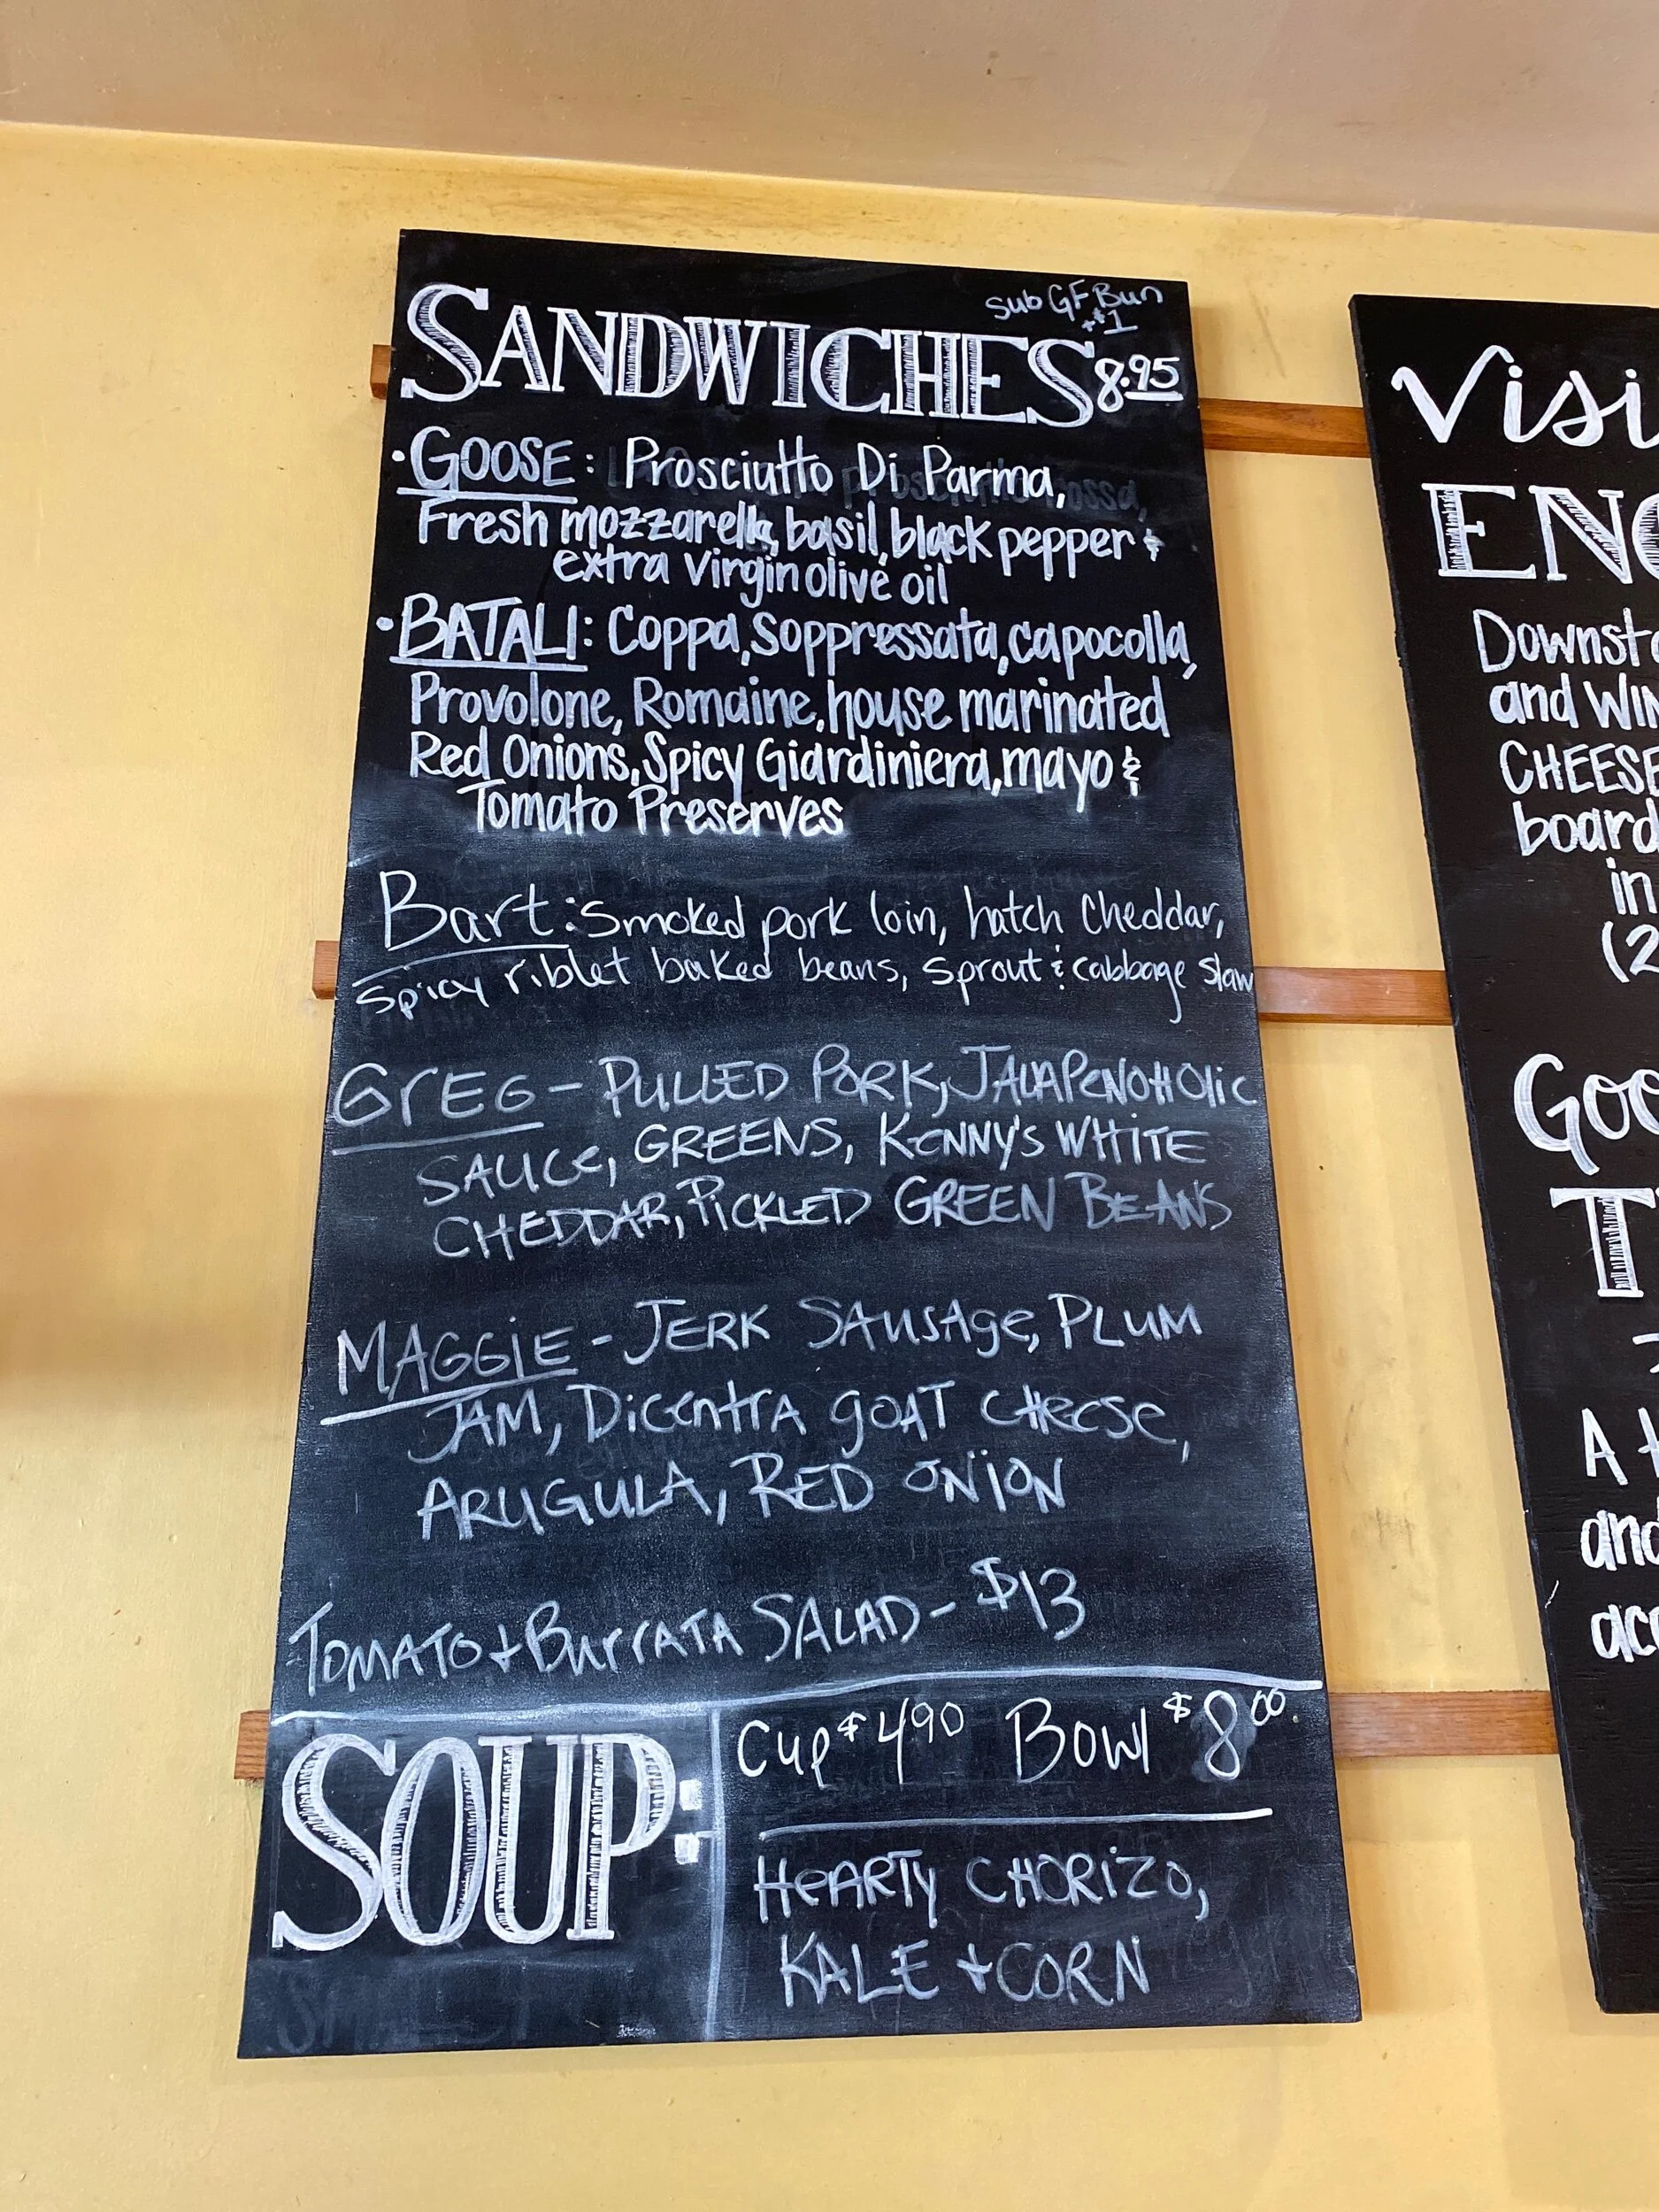 Sub GF Bun
+$1
SANDWICHES 8.95
• GOOSE: Prosciutto Di Parma,
Fresh mozzarella, basil, black pepper &
extra virgin olive oil
• BATALI: Coppa, Soppressata, capocolla,
Provolone, Romaine, house marinated
Red Onions, Spicy Giardiniera, mayo &
Tomato Preserves
Bart: Smoked pork loin, hatch Cheddar,
Spicy riblet baked beans, sprout & cabbage slaw
GREG - PULLED PORK, JALAPENOHOLIC
SAUCE, GREENS, KENNY'S WHITE
CHEDDAR, PICKLED GREEN BEANS
MAGGIE - JERK SAUSAGE, PLUM
JAM, DICENTRA GOAT CHEESE,
ARUGULA, RED ONION
TOMATO + BURRATA SALAD - $13
SOUP:
Cup $4.90 Bowl $8.00
HEARTY CHORIZO,
KALE + CORN
Visi
ENO
Downsta
and WIN
CHEESE
board
in
(2
Goo
T
A t
and
acc